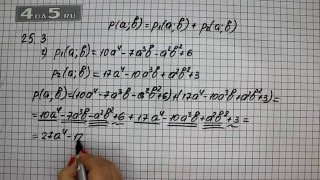 4да5.ру
p(a;b) = p₁(a;b) + p₂(a;b)
25.3
1) p₁(a;b) = 10a⁴ - 7a³b - a²b² + 6
p₂(a;b) = 17a⁴ - 10a³b + a²b² + 3
p(a;b) = (10a⁴ - 7a³b - a²b² + 6) + (17a⁴ - 10a³b + a²b² + 3) =
= 10a⁴ - 7a³b - a²b² + 6 + 17a⁴ - 10a³b + a²b² + 3 =
= 27a⁴ - 17